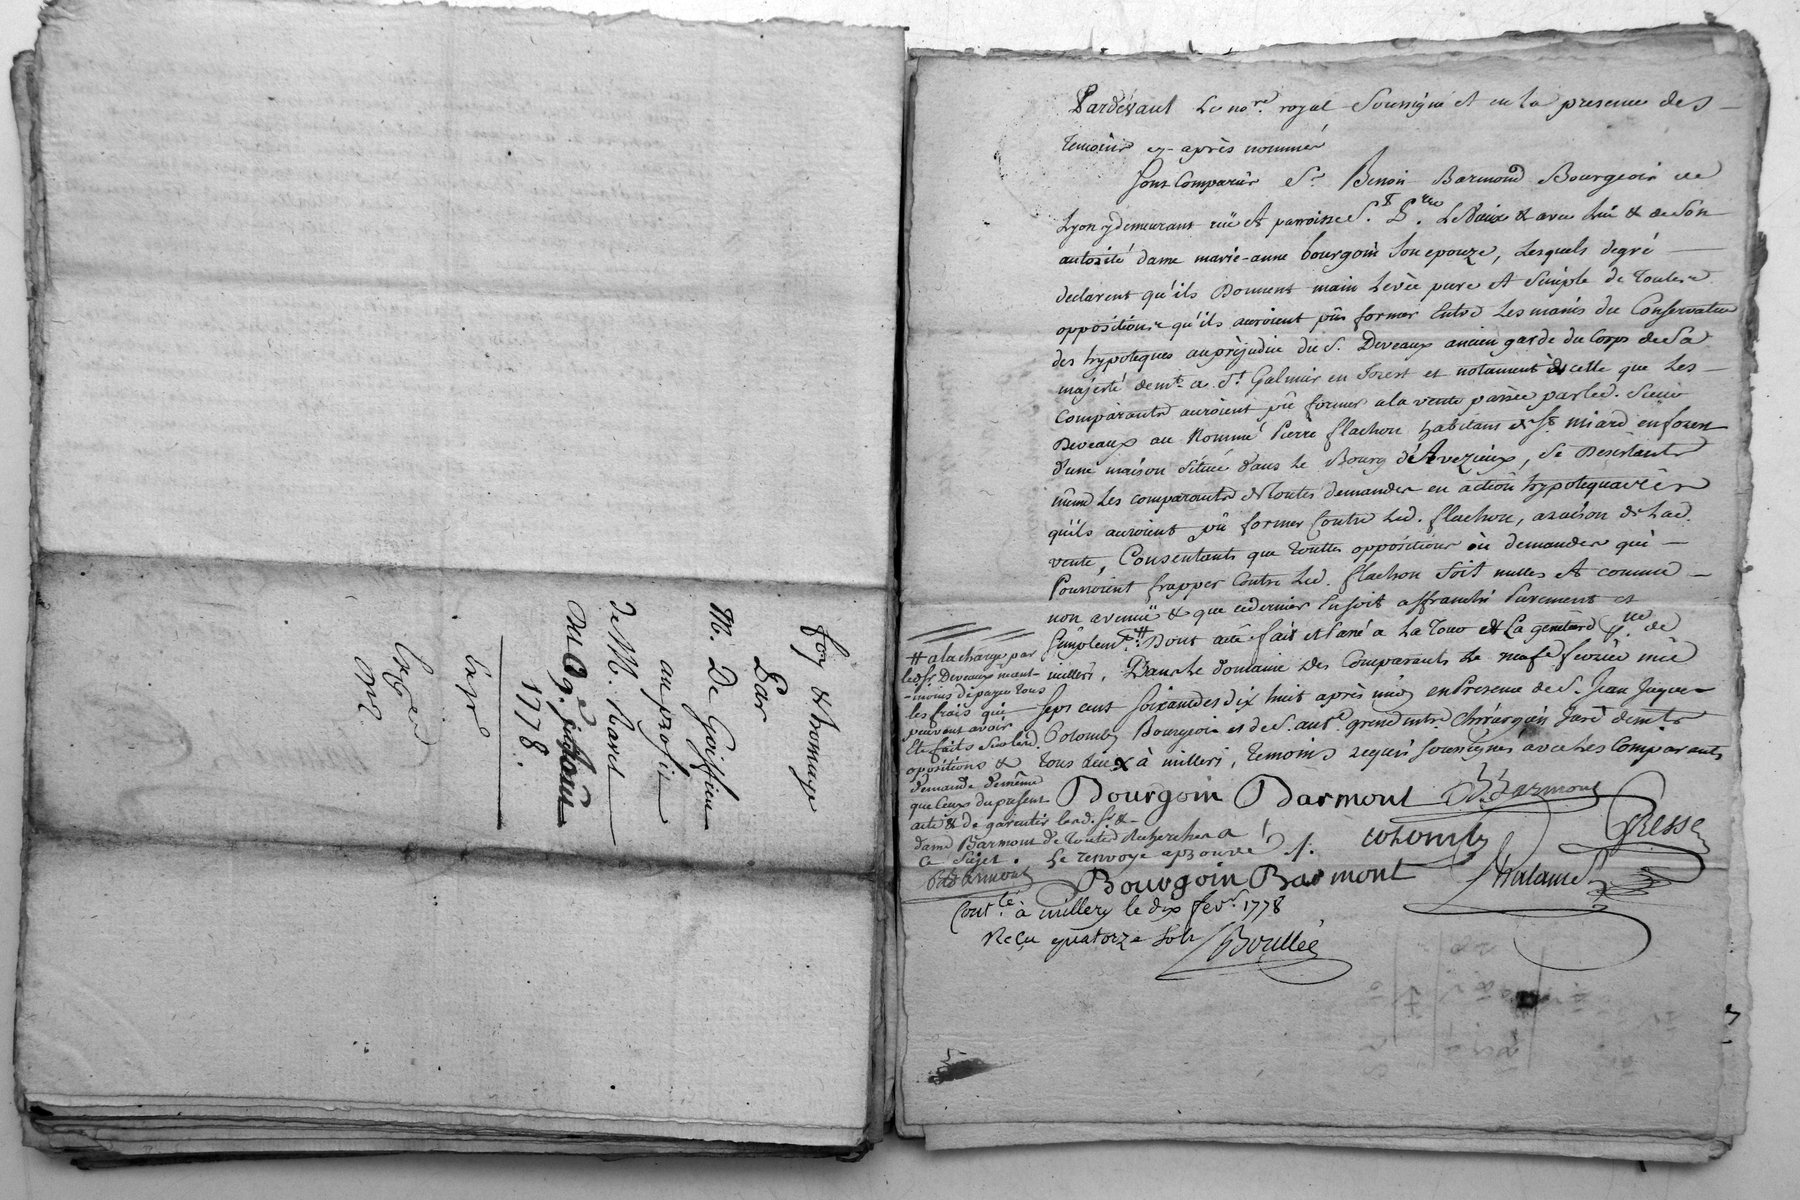 foy & homage
Par
M. De Goiffieu
au profit
de M. Ravel
Du 9e
1778.
Pardevant Le nore. royal Soussigné et en la presence des
temoins cy-après nommés
Sont Comparus Sr. Benoit Barmond Bourgeois de
Lyon y demeurant rüe et parroisse St. P.rre Le Vieux & avec lui & de Son
autorité dame marie-anne bourgoin Son epouze, Lesquels degré
declarent qu'ils Donnent main Levée pure et Simple de toutes
oppositions qu'ils auroient pûs former Entre Les mains du Conservateur
des hypoteques au préjudice du S. Deveaux ancien garde du Corps de Sa
majesté demt. a St. Galmier en forest et notament de celle que Les
Comparants auroient pû former a la vente passée par led. Sieur
Deveaux au Nommé Pierre flachon habitant de St. miard en forest
d'une maison Située dans Le Bourg d'Avezieux, Se Desistants
même Les comparants de toutes demandes en action hypotequaires
qu'ils auroient pû former Contre Led. flachon, a raison de Lad.
vente, Consentants que touttes oppositions où demandes qui
Pourroient frapper Contre Led. flachon Soit nulles et comme
non avenüe & que cedernier En soit affranchi Purement et
Simplemt. # Dont acte fait et Passé a La Tour de La gen
milleri, Dans Le domaine des Comparants Le neufe fevrier mil
Sept cent Soixante dix huit après midy en Presence de S. Jean Jaque
Colomby Bourgeois et de S. ant.e chirurgien Juré demts
tous deux à milleri, temoins requis soussignés avec Les Comparants
# a la charge par
led. Sr. Deveaux neant-
-moins de payer tous
les frais qui
peuvent avoir
Eté faits Sur lesd.
opositions &
demande de même
que Ceux du présent
acte & de garentir lesd. Sr. &
dame Barmont de toutes Recherches a
ce Sujet. Le renvoye aprouvé
Bourgoin Barmont B. Barmont
Colomby Gresse
B Barmont Bourgoin Barmont
Contlé. à millery le dix fevr. 1778
Reçu quatorze sols Boullée